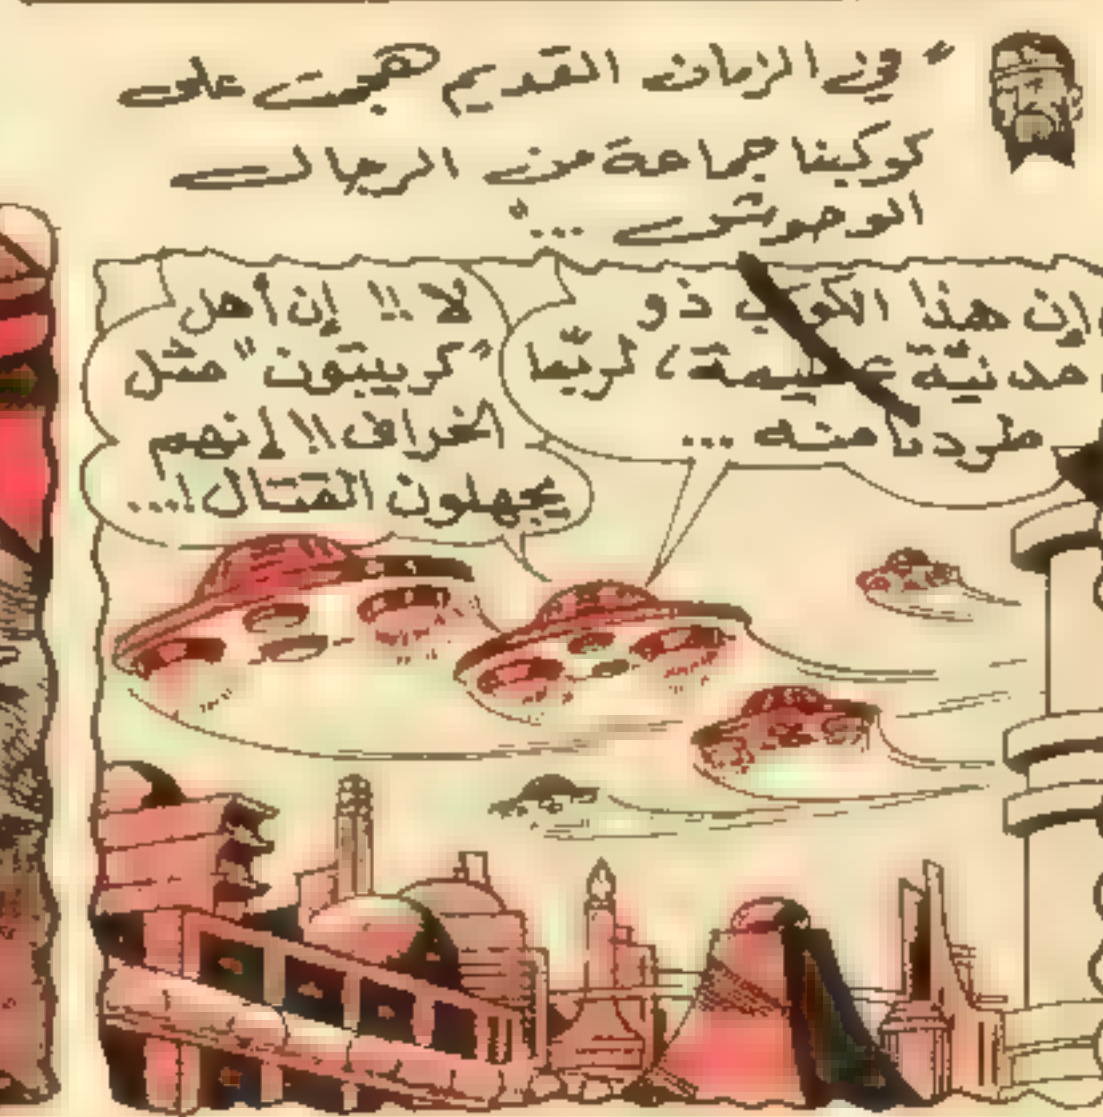 "في الزمان القديم هجمت على
كوكبنا جماعة من الرجال
الوحوش ..."
إن هذا الكوكب ذو
مدنيّة عظيمة، لربّما
طردنا منه ...
لا !! إن أهل
"كريبتون" مثل
الخراف !! إنهم
يجهلون القتال !...